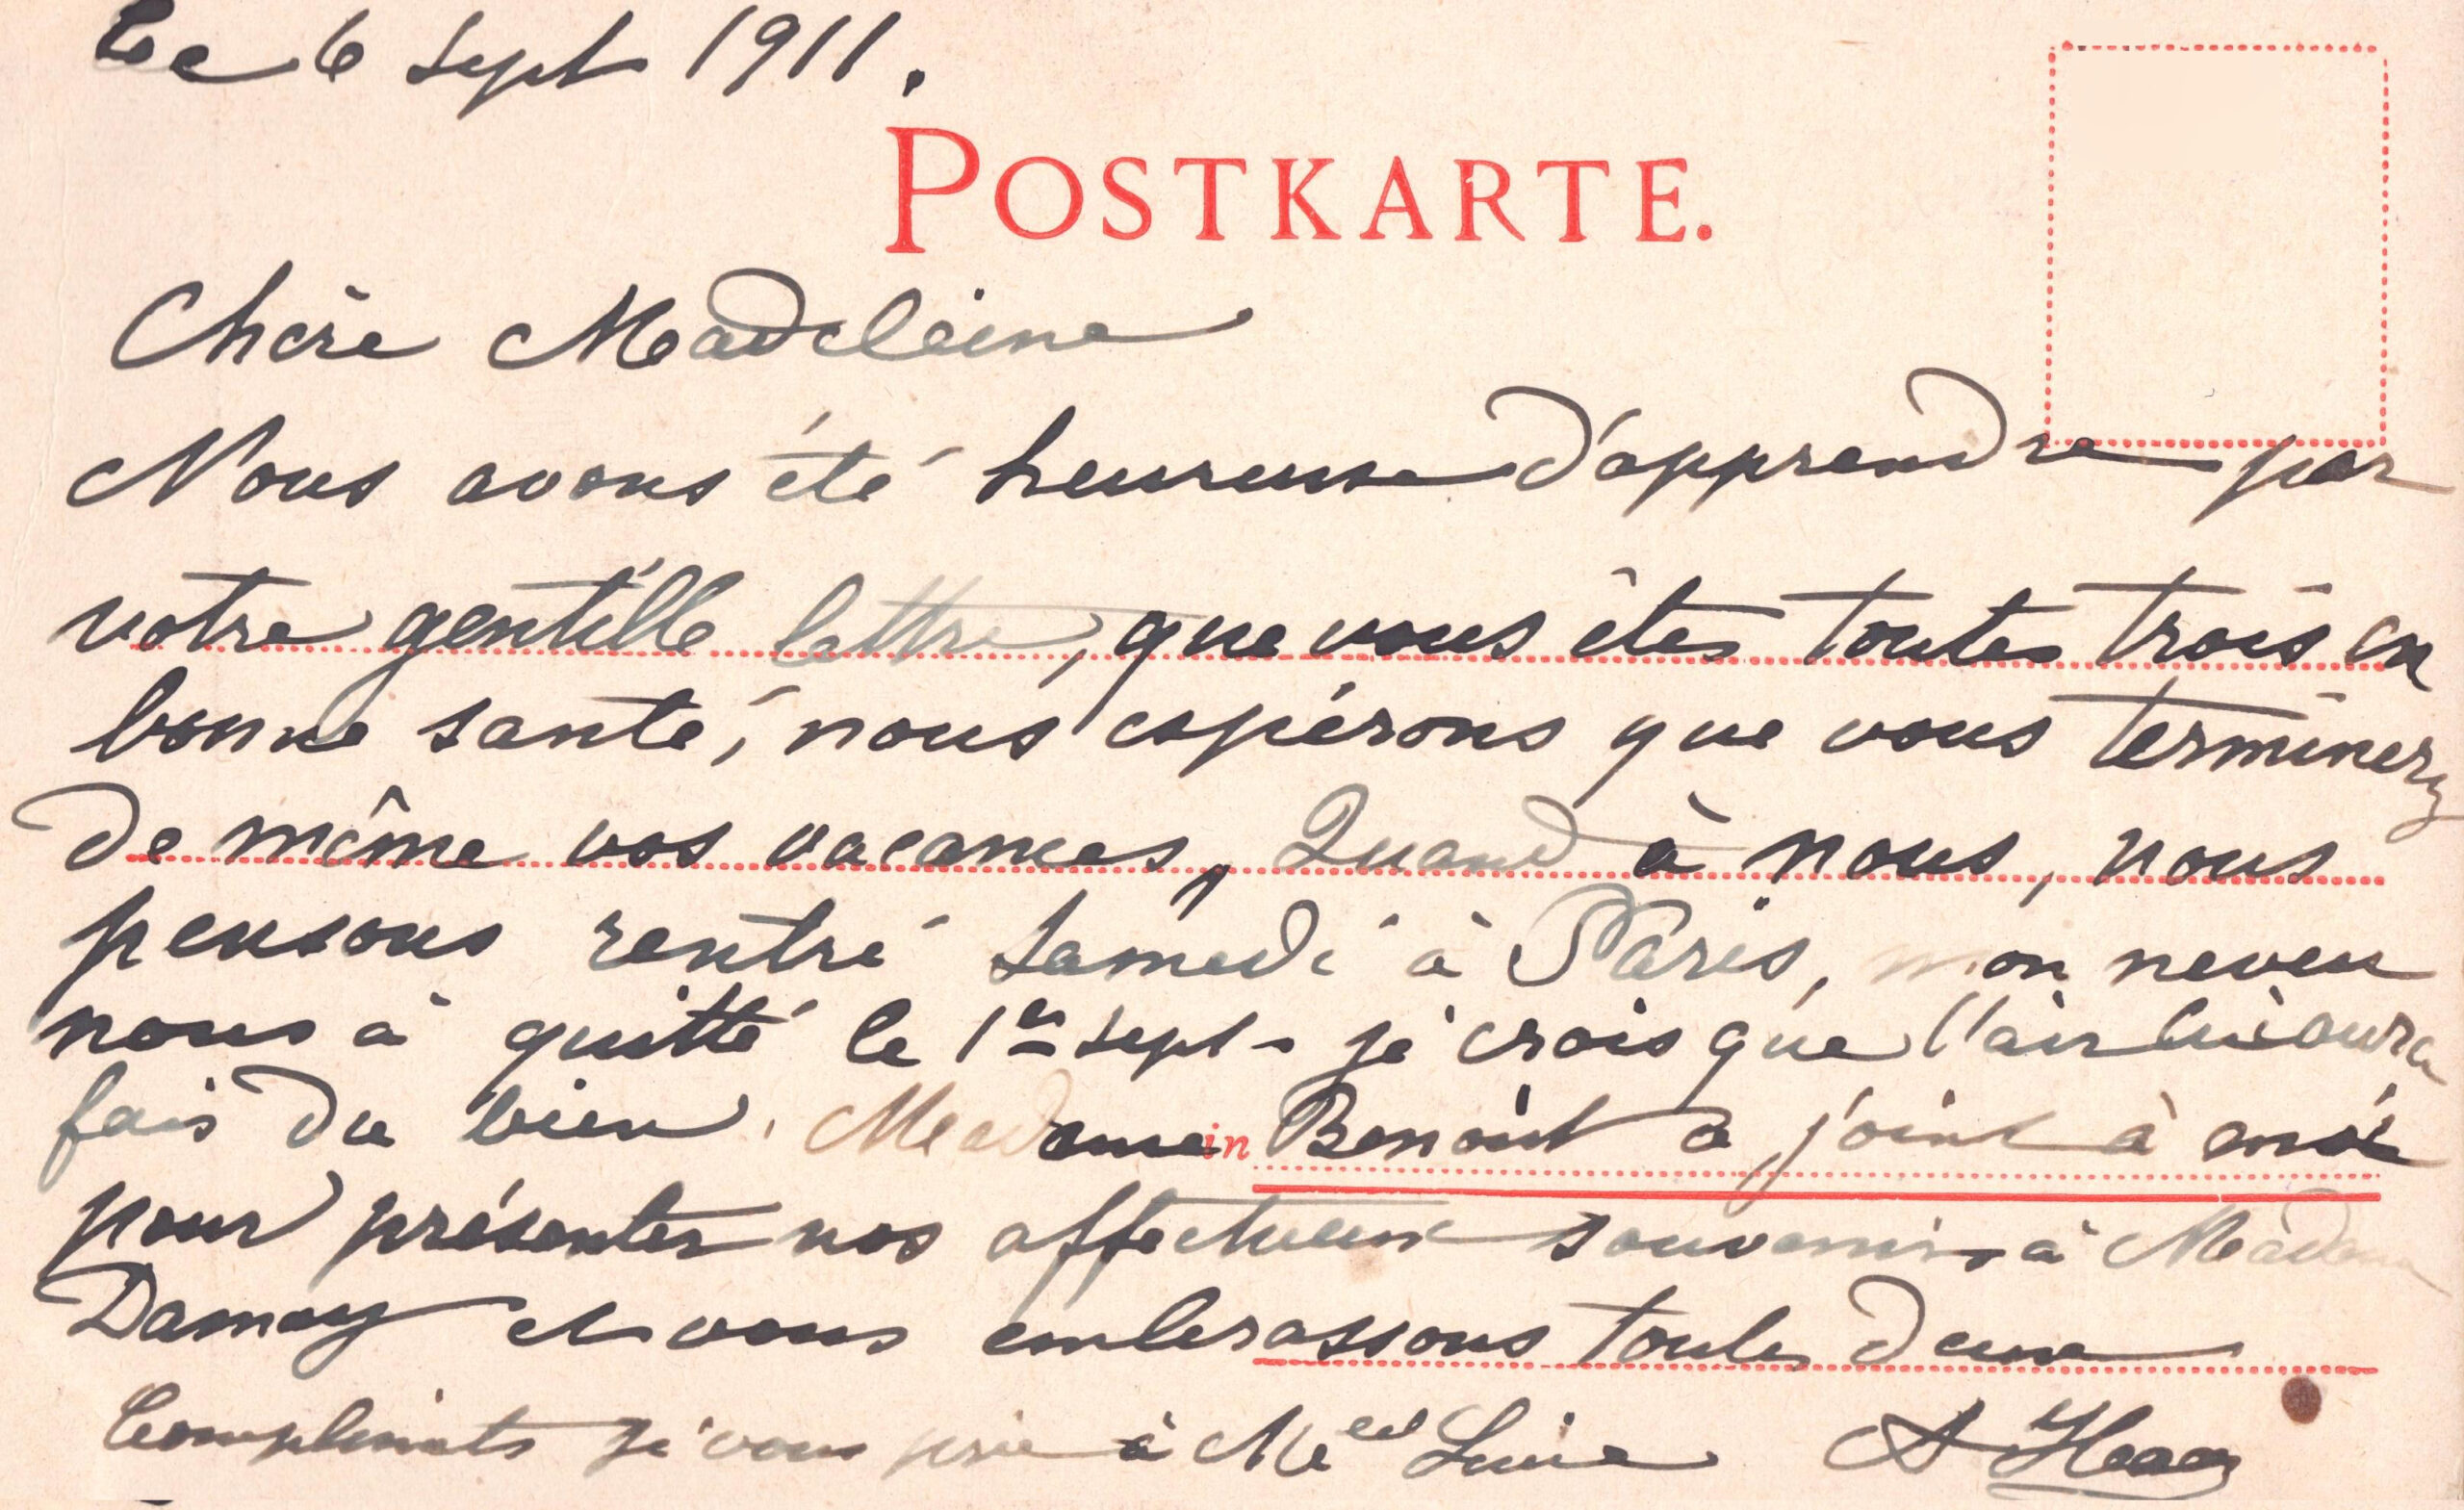 Le 6 Sept 1911.
POSTKARTE.
Chère Madeleine
Nous avons été heureuse d'apprendre par
votre gentille lettre, que vous êtes toutes trois en
bonne santé, nous espérons que vous terminerez
de même vos vacances, Quand à nous, nous
pensons rentré Samedi à Paris, mon neveu
nous à quitté le 1er Sept. je crois que l'air lui aura
fais du bien. Madame in Benoit a joint à moi
pour présenter nos affectueux souvenirs à Madame
Damoy et vous embrassons toutes deux
Compliments je vous prie à Melle Luise A Haas